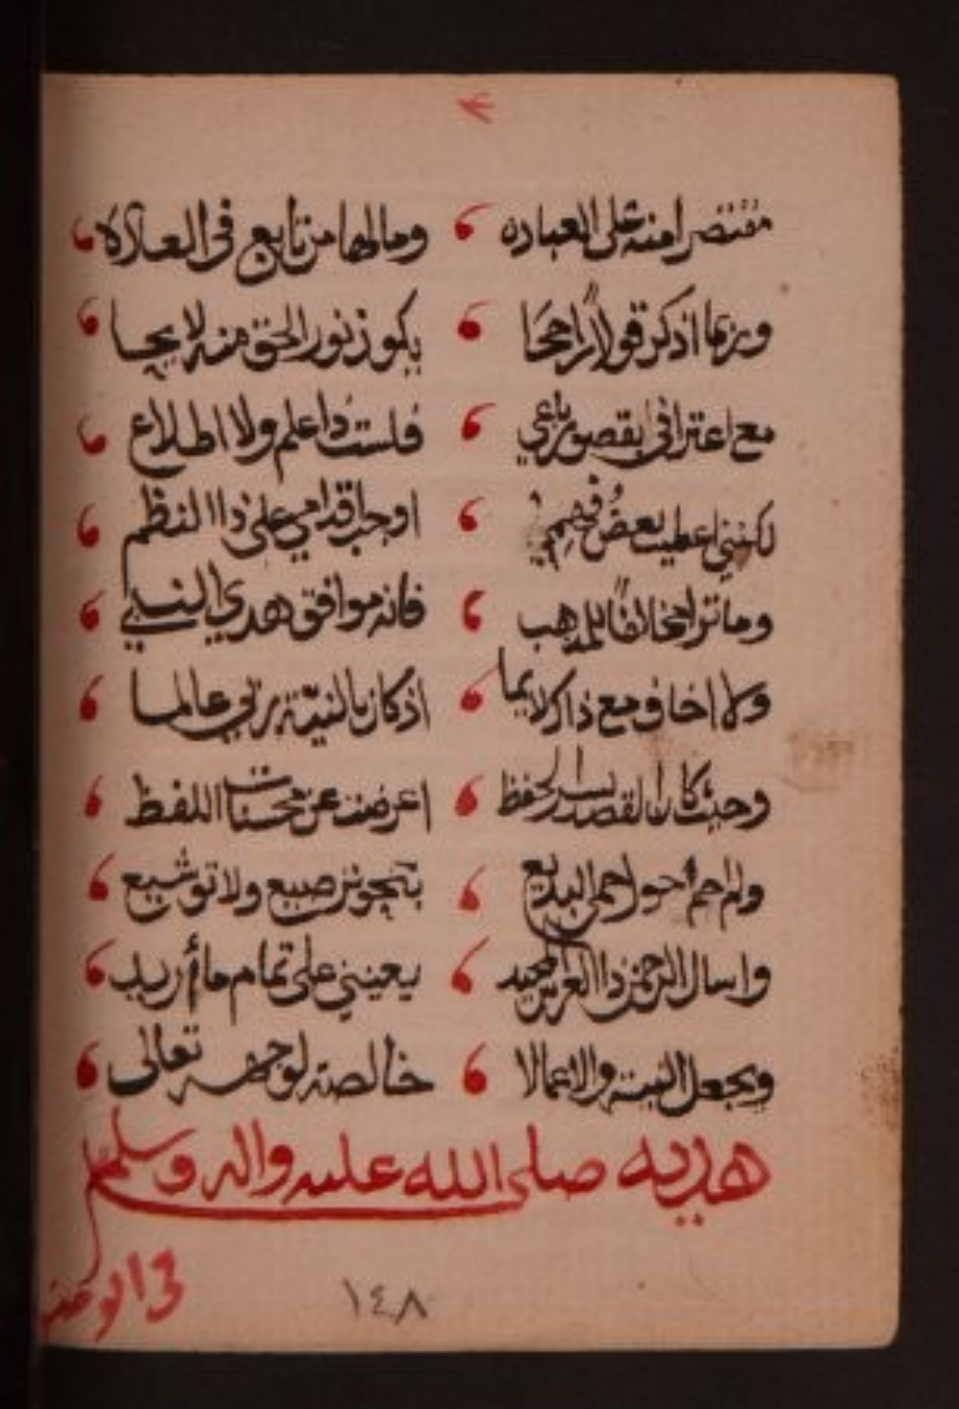 مقتصرا منه على العباده وما لها من تابع فى العاده
وربما اذكر قولا راجحا يكون نور الحق منه لايحا
مع اعترافى بقصور باعي فلست ذا علم ولا اطلاع
لكننى اعطيت بعض فهم اوجب اقدامي على ذا النظم
وما تراه مخالفا للمذهب فانه موافق هدي النبي
ولا اخاف مع ذاك لايما اذ كان بالنية ربي عالما
وحيث كان القصد يسر الحفظ اعرضت عن محسنات اللفظ
ولم احم حول حمى البديع بتجويز صبيع ولا توشيع
واسال الرحمن ذا العرش المجيد يعينني على تمام ما أريد
ويجعل النية والاعمالا خالصة لوجهه تعالى
هديه صلى الله عليه واله وسلم
فى الوضوء
١٤٨